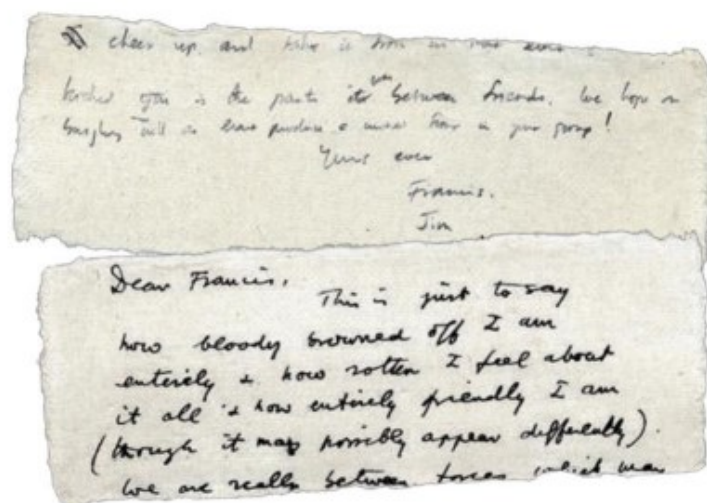 cheer up, and take it from us
kicked you in the pants it was between friends. We hope our
burglary will at least produce a united front in your group!
Yours ever
Francis.
Jim
Dear Francis,
This is just to say
how bloody browned off I am
entirely & how rotten I feel about
it all & how entirely friendly I am
(though it may possibly appear differently).
We are really between forces which may